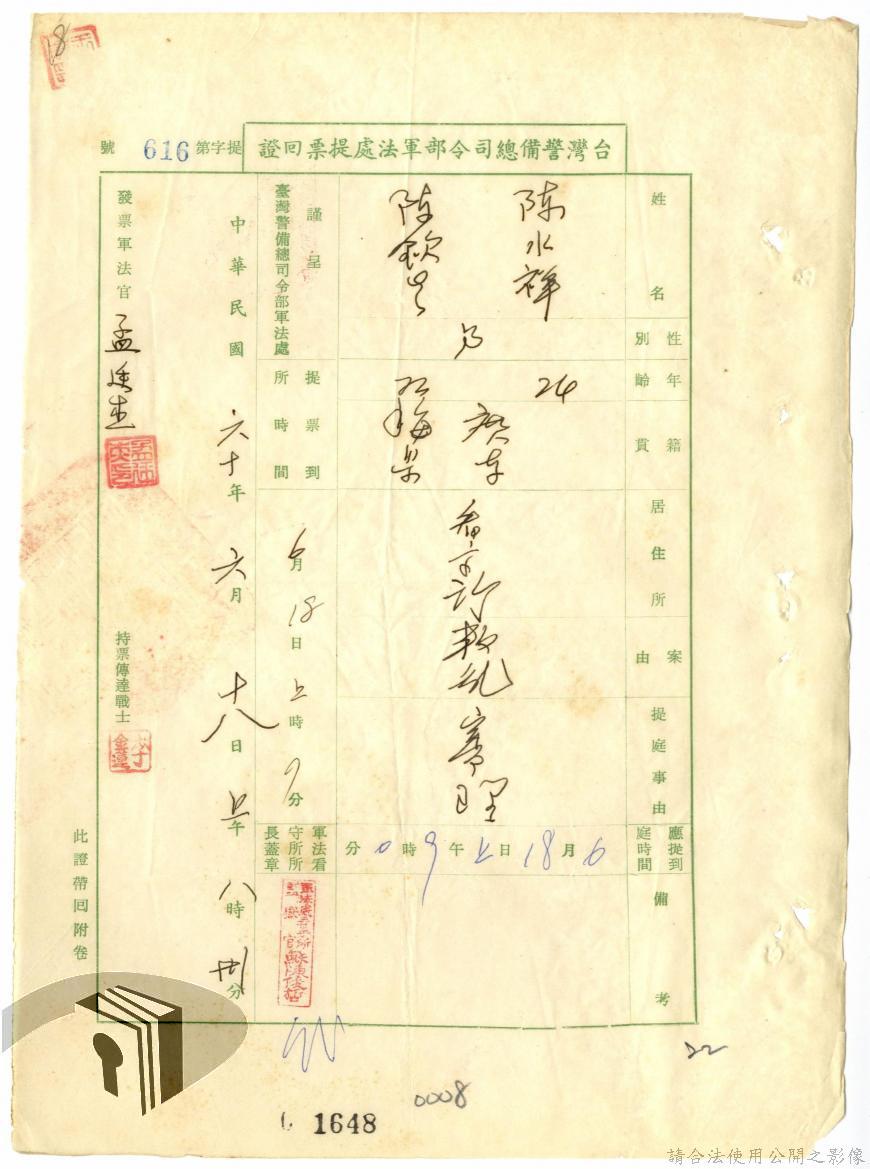 台灣警備總司令部軍法處提票回證
提字第616號
姓名
陳水祥
陳欽生
性別
男
年齡
24
籍貫
廣東
梅縣
居住所
看守所
案由
叛亂
提庭事由
審理
應提到庭時間
6月18日上午9時0分
備考
謹呈
臺灣警備總司令部軍法處
提票到所時間
6月18日上時9分
軍法看守所所長蓋章
中華民國六十年六月十八日上午八時卅分
發票軍法官
孟廷杰
持票傳達戰士
此證帶回附卷
8
22
0008
1648
請合法使用公開之影像